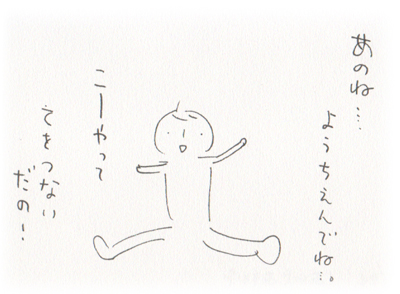 あのね…
ようちえんでね…。
こーやって
てをつない
だの!